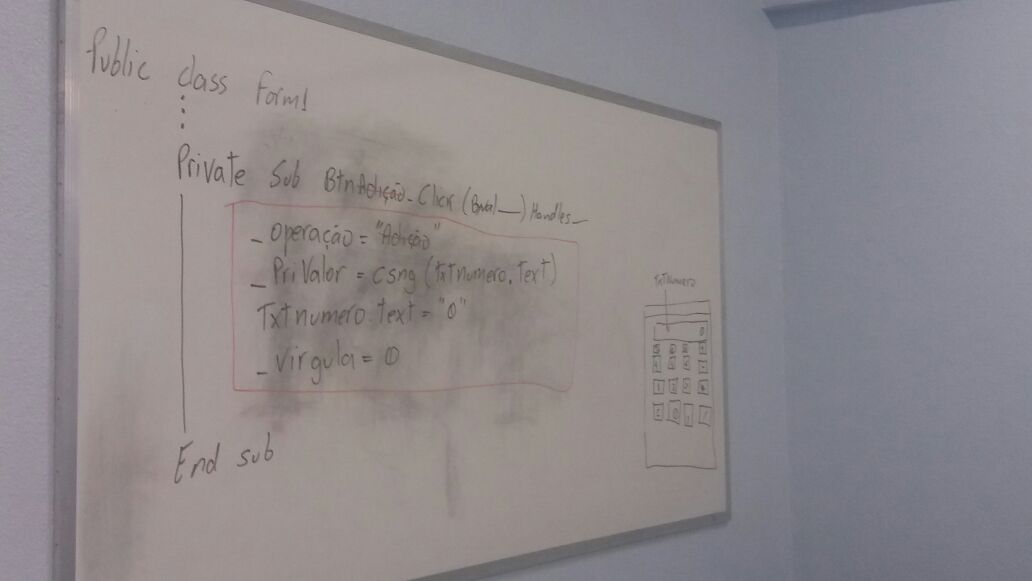 Public class Form1
Private Sub BtnAdição_Click (ByVal __) Handles_
_operação = "Adição"
_PriValor = csng (Txtnumero.Text)
Txtnumero.text = "0"
_virgula = 0
End sub
TxtNumero
0